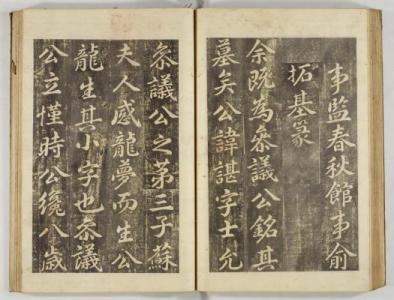 事監春秋館事俞
拓基篆
余既為叅議公銘其
墓矣公諱諶字士允
叅議公之第三子蘇
夫人感龍夢而生公
龍生其小字也叅議
公立慬時公纔八歲